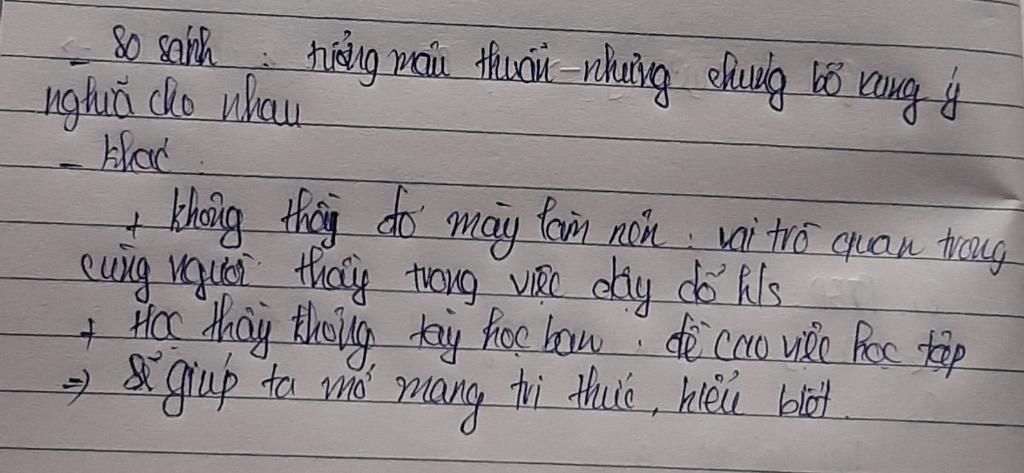 - So sánh : tưởng mâu thuẫn nhưng chúng bổ xung ý
nghĩa cho nhau
- khác :
+ không thầy đố mày làm nên : vai trò quan trong
cùng người thầy trong việc dạy dỗ h/s
+ Học thầy không tày học bạn : đề cao việc học tập
=> Sẽ giúp ta mở mang tri thức, hiểu biết.